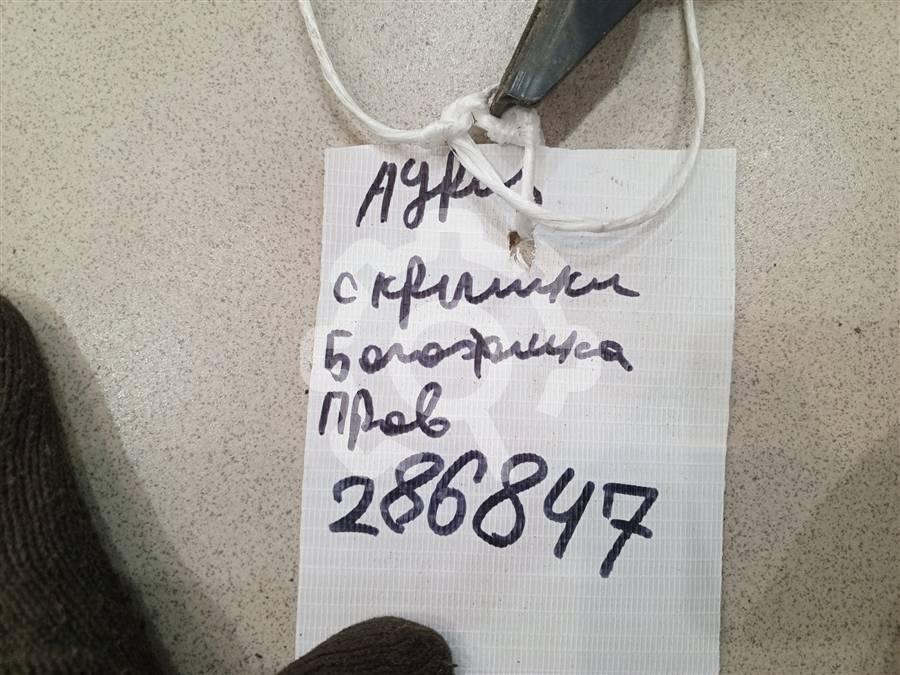 Аурис
скрышки
Богожника
Прав
286847